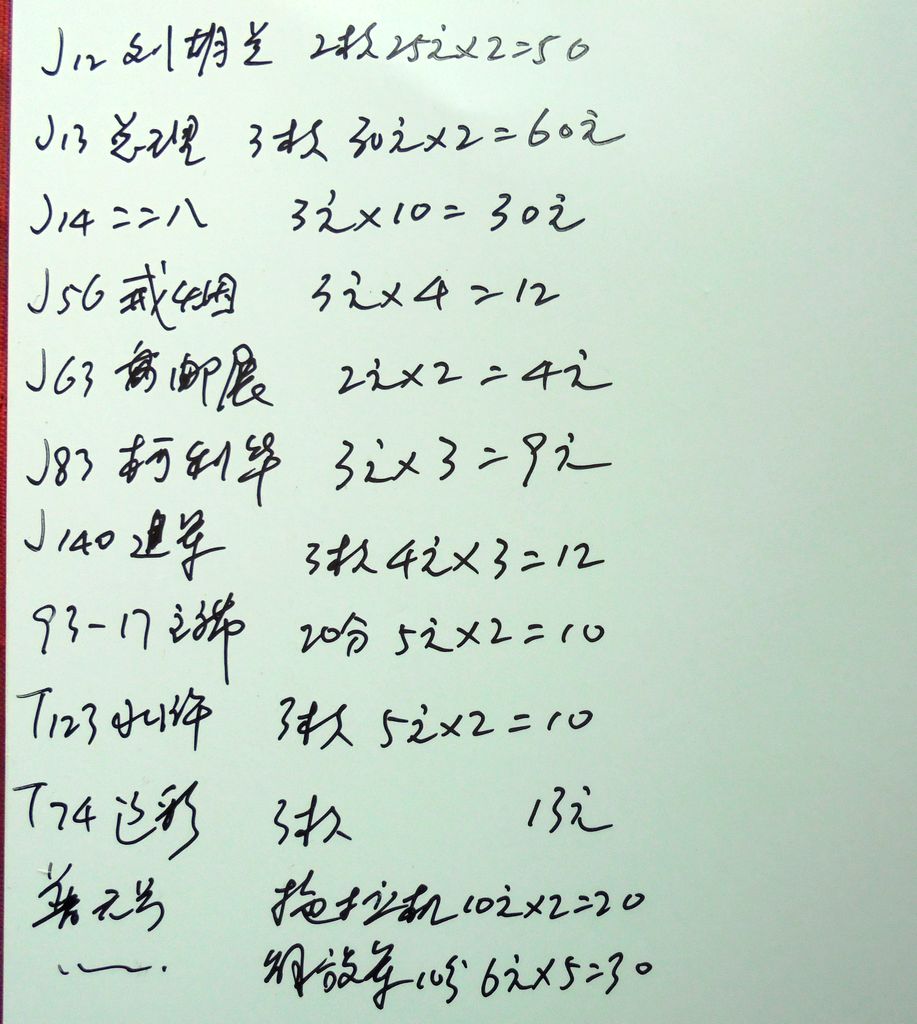 J12 刘胡兰 2枚25元×2=50
J13 总理 3枚 30元×2=60元
J14 二二八 3元×10=30元
J56 戒烟 3元×4=12
J63 邮展 2元×2=4元
J83 柯利华 3元×3=9元
J140 建军 3枚4元×3=12
93-17 20分 5元×2=10
T123 水浒 3枚 5元×2=10
T74 辽彩 3枚 13元
普无号 拖拉机10元×2=20
解放军10分 6元×5=30